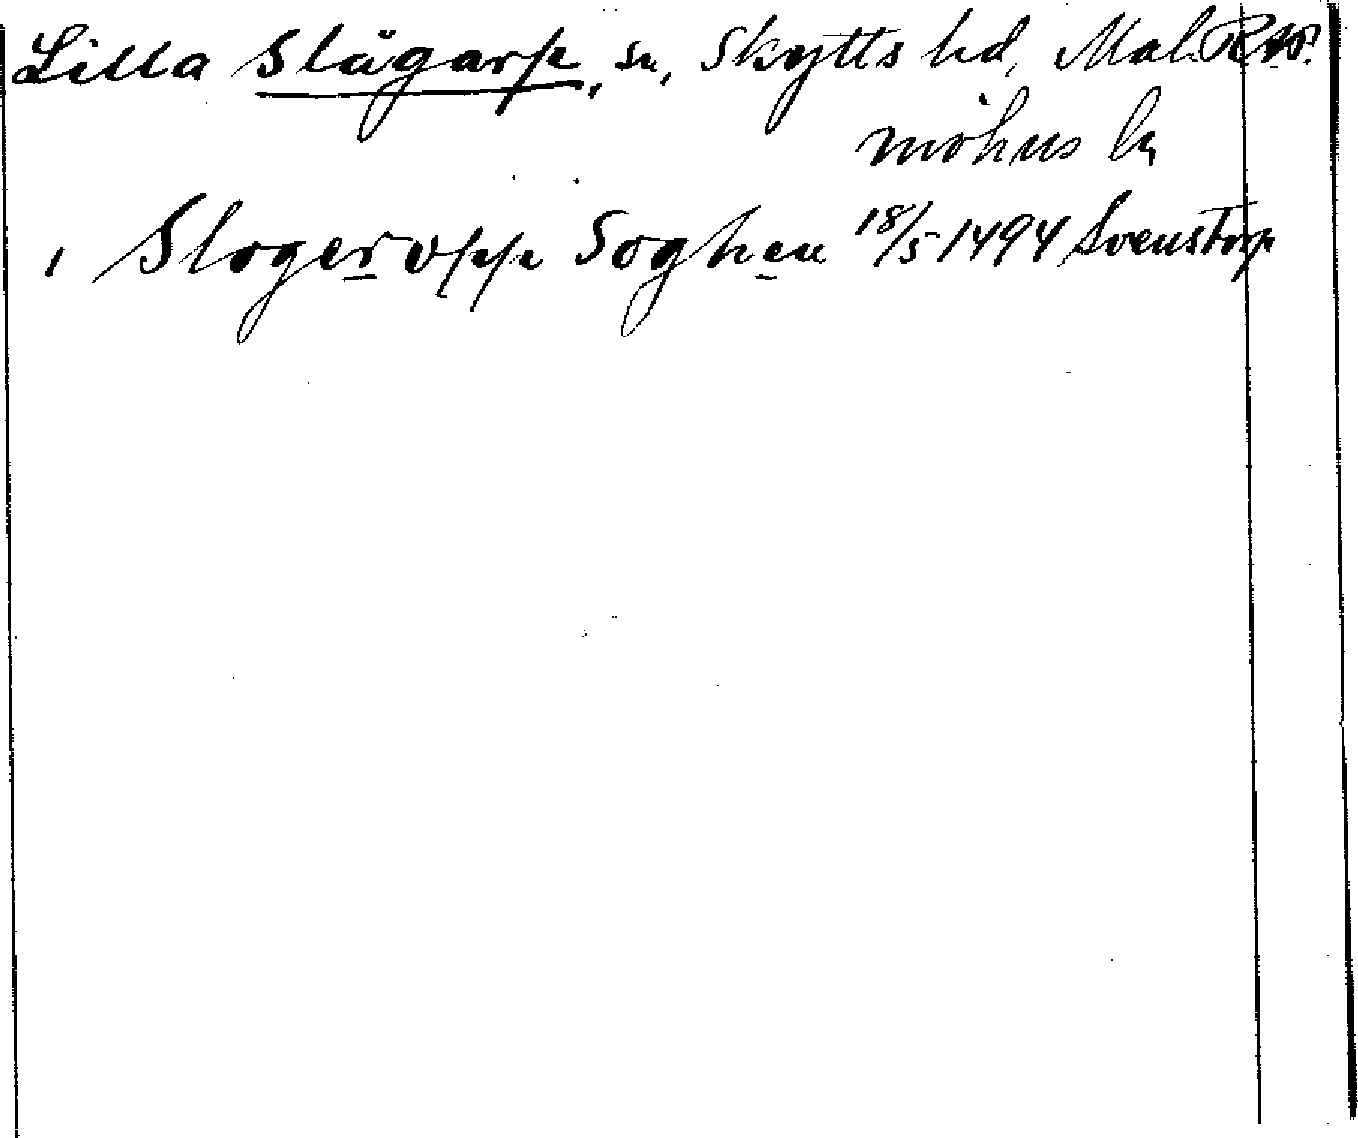 Lilla Slågarp, sn, Skytts hd, Mal
möhus ln
i Slogeropp Soghen 18/5 1494 Svenstorp